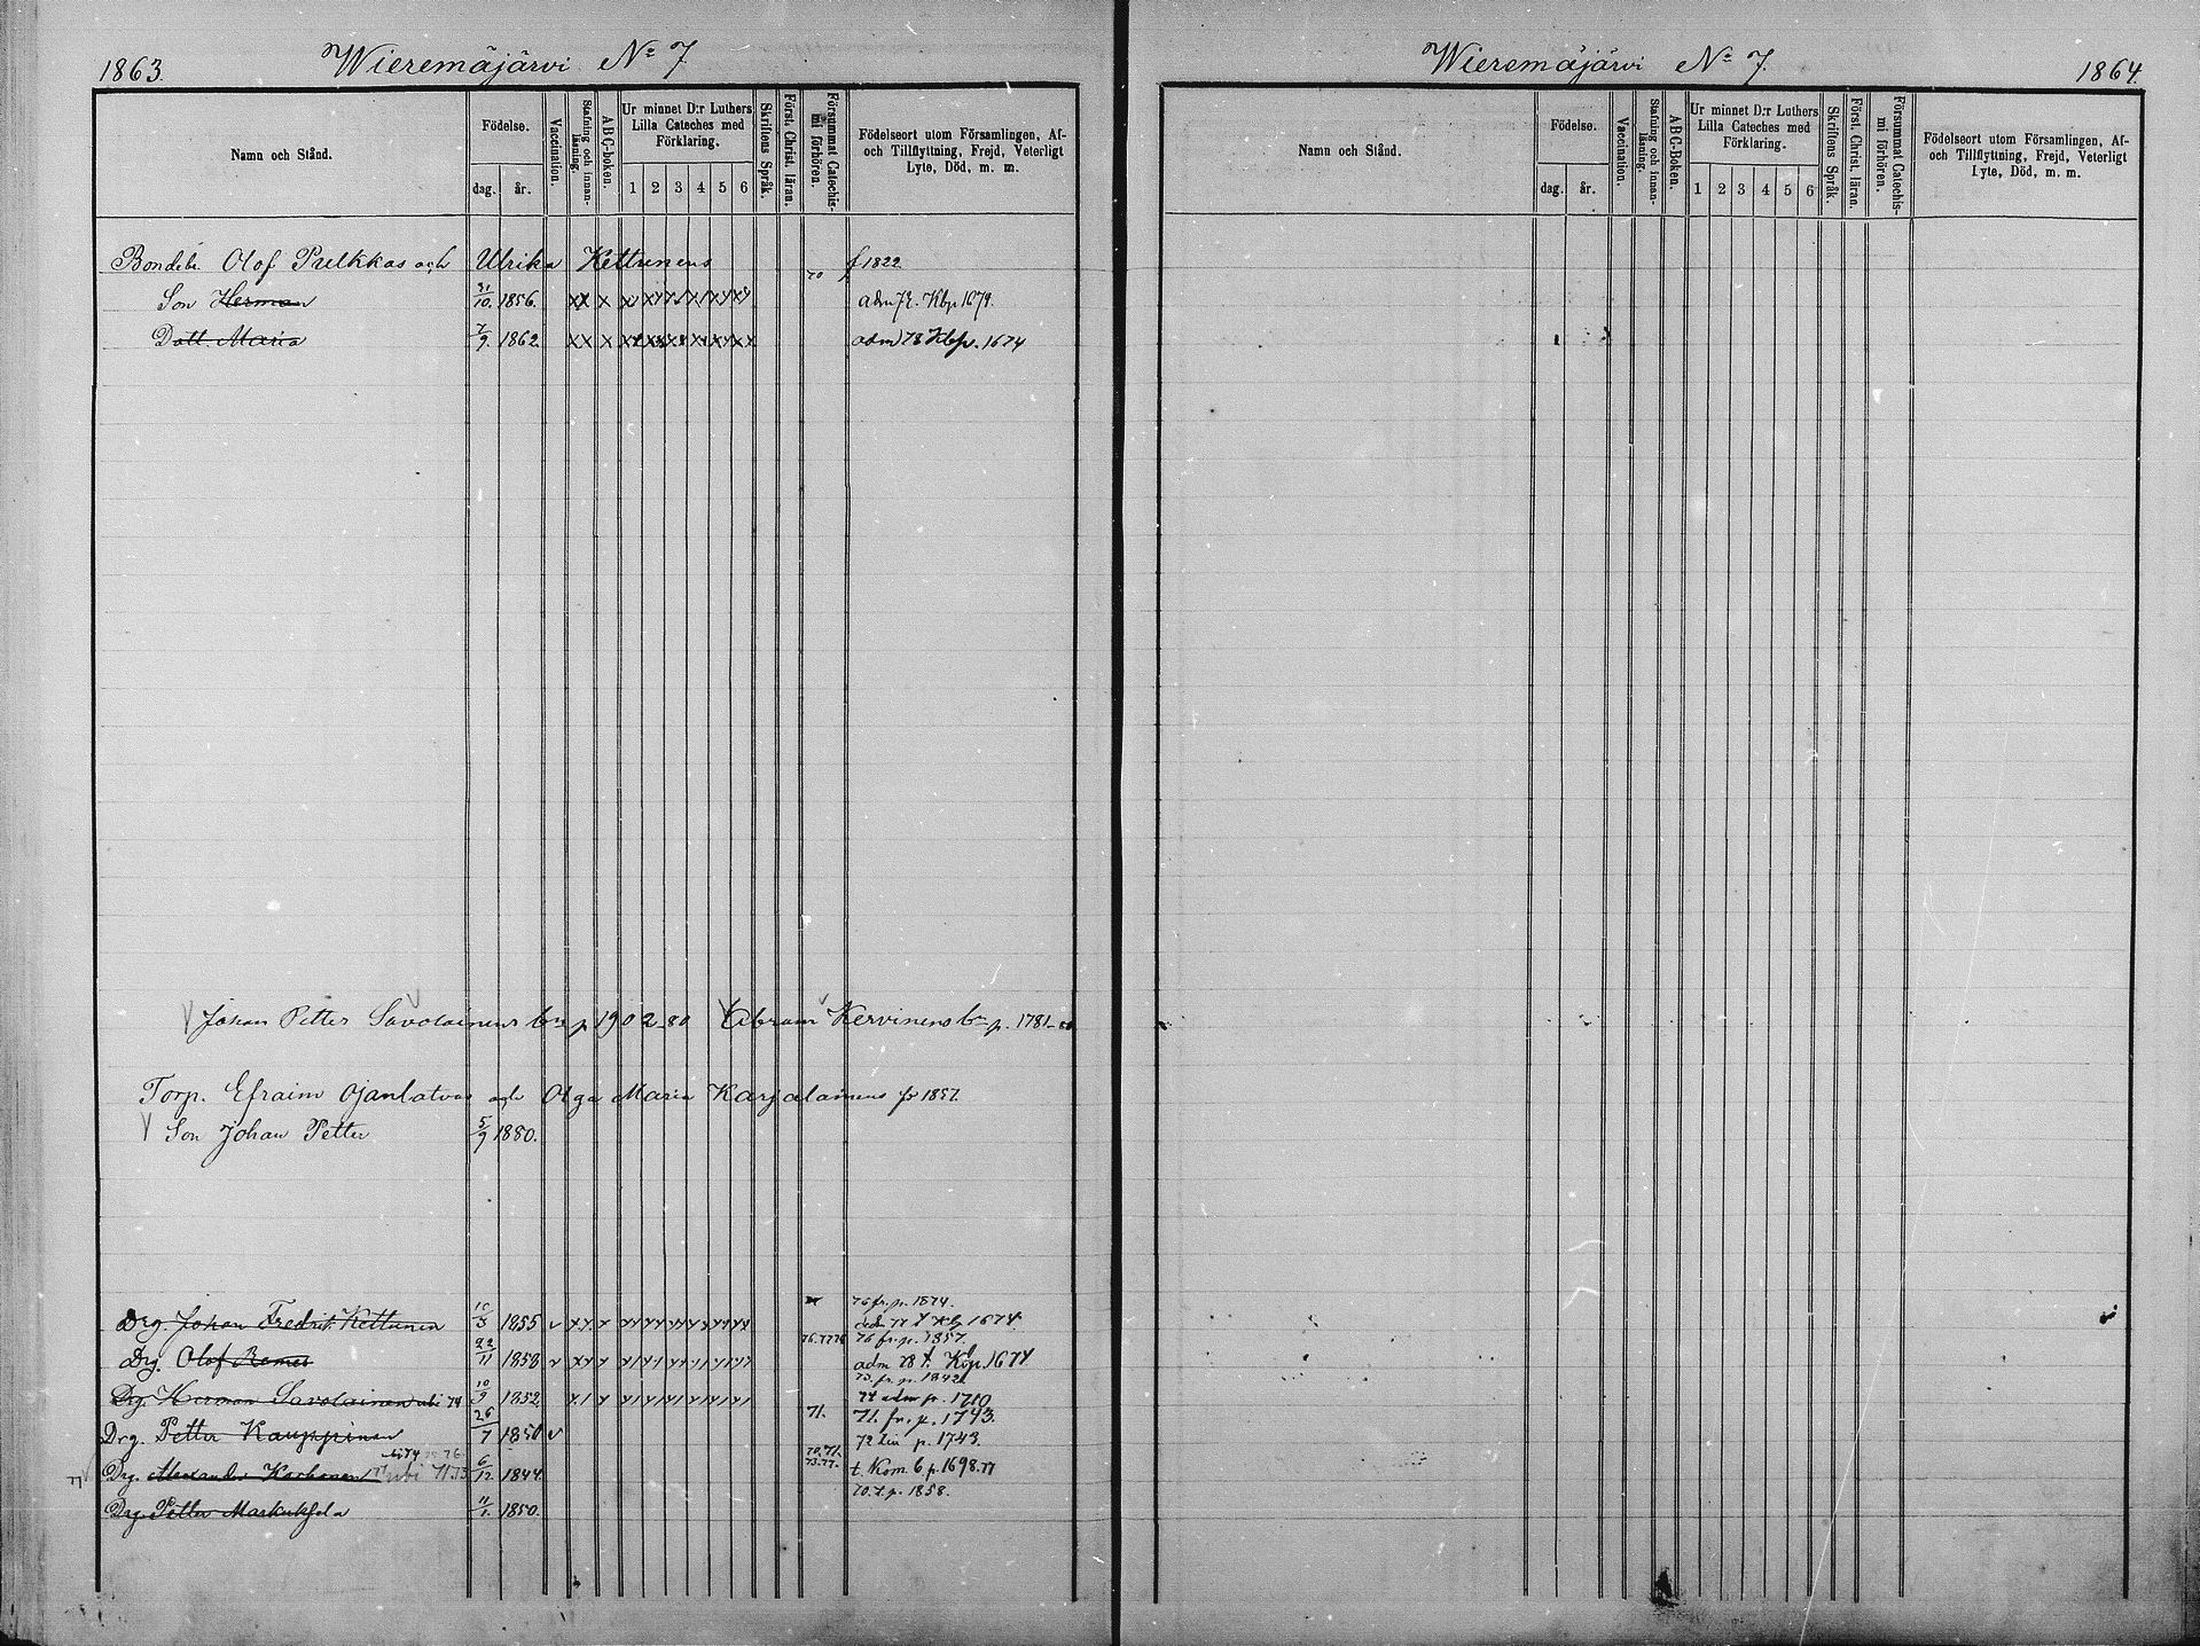 1863.
Wieremäjärvi No 7
Namn och Stånd.
Födelse.
dag.
år.
Vaccination.
Stafning och innan-
läsning.
ABC-boken.
Ur minnet D:r Luthers
Lilla Cateches med
Förklaring.
1 2 3 4 5 6
Skriftens Språk.
Först. Christ. läran.
Försummat Catechis-
mi förhören.
Födelseort utom Församlingen, Af-
och Tillflyttning, Frejd, Veterligt
Lyte, Död, m. m.
Bondebr. Olof Pulkkas och Ulrika Kettunens 70 f 1822
Son Herman 31/10. 1856. Kbp 1679.
Dott. Maria 7/9. 1862. adm 78 Kbp. 1674
Johan Petter Savolainens bns p 1902-80 Abram Kervinens bn p. 1781-80
Torp. Efraim Ojanlatvas och Olga Maria Karjalainens fr 1857.
Son Johan Petter 5/9 1880.
76 fr. p. 1874.
Drg. Johan Fredrik Kettunen 1855 1674
76.77.78 76 fr. p. 1857.
Drg. Olof Remes 22/11 1858 adm 78 t. Kbp. 1674
73. fr. p. 1842
Drg. Herman Savolainen ubi 74 10/9 1852. 74 adm fr. 1710
71. 71. fr. p. 1743.
Drg. Petter Kauppinen 26/7 1850 72 p. 1743.
ubi 74 76
70.71.
73.77.
77 Drg. Alexander Korhonen ubi 71.73 6/12. 1844. t. Kom. b. p. 1698.77
70. t. p. 1858.
Drg. Petter Markuksela 11/1. 1850.
Wieremäjärvi No 7.
1864.
Namn och Stånd.
Födelse.
dag.
år.
Vaccination.
Stafning och innan-
läsning.
ABC-Boken.
Ur minnet D:r Luthers
Lilla Cateches med
Förklaring.
1 2 3 4 5 6
Skriftens Språk.
Först. Christ. läran.
Försummat Catechis-
mi förhören.
Födelseort utom Församlingen, Af-
och Tillflyttning, Frejd, Veterligt
Lyte, Död, m. m.